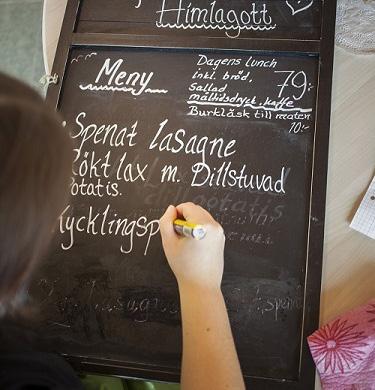 Himlagott
Meny
Dagens lunch
inkl. bröd,
Sallad
måltidsdryck, kaffe
79:-
Burkläsk till maten
10:-
Spenat lasagne
Rökt lax m. Dillstuvad
Potatis.
Kycklingsp